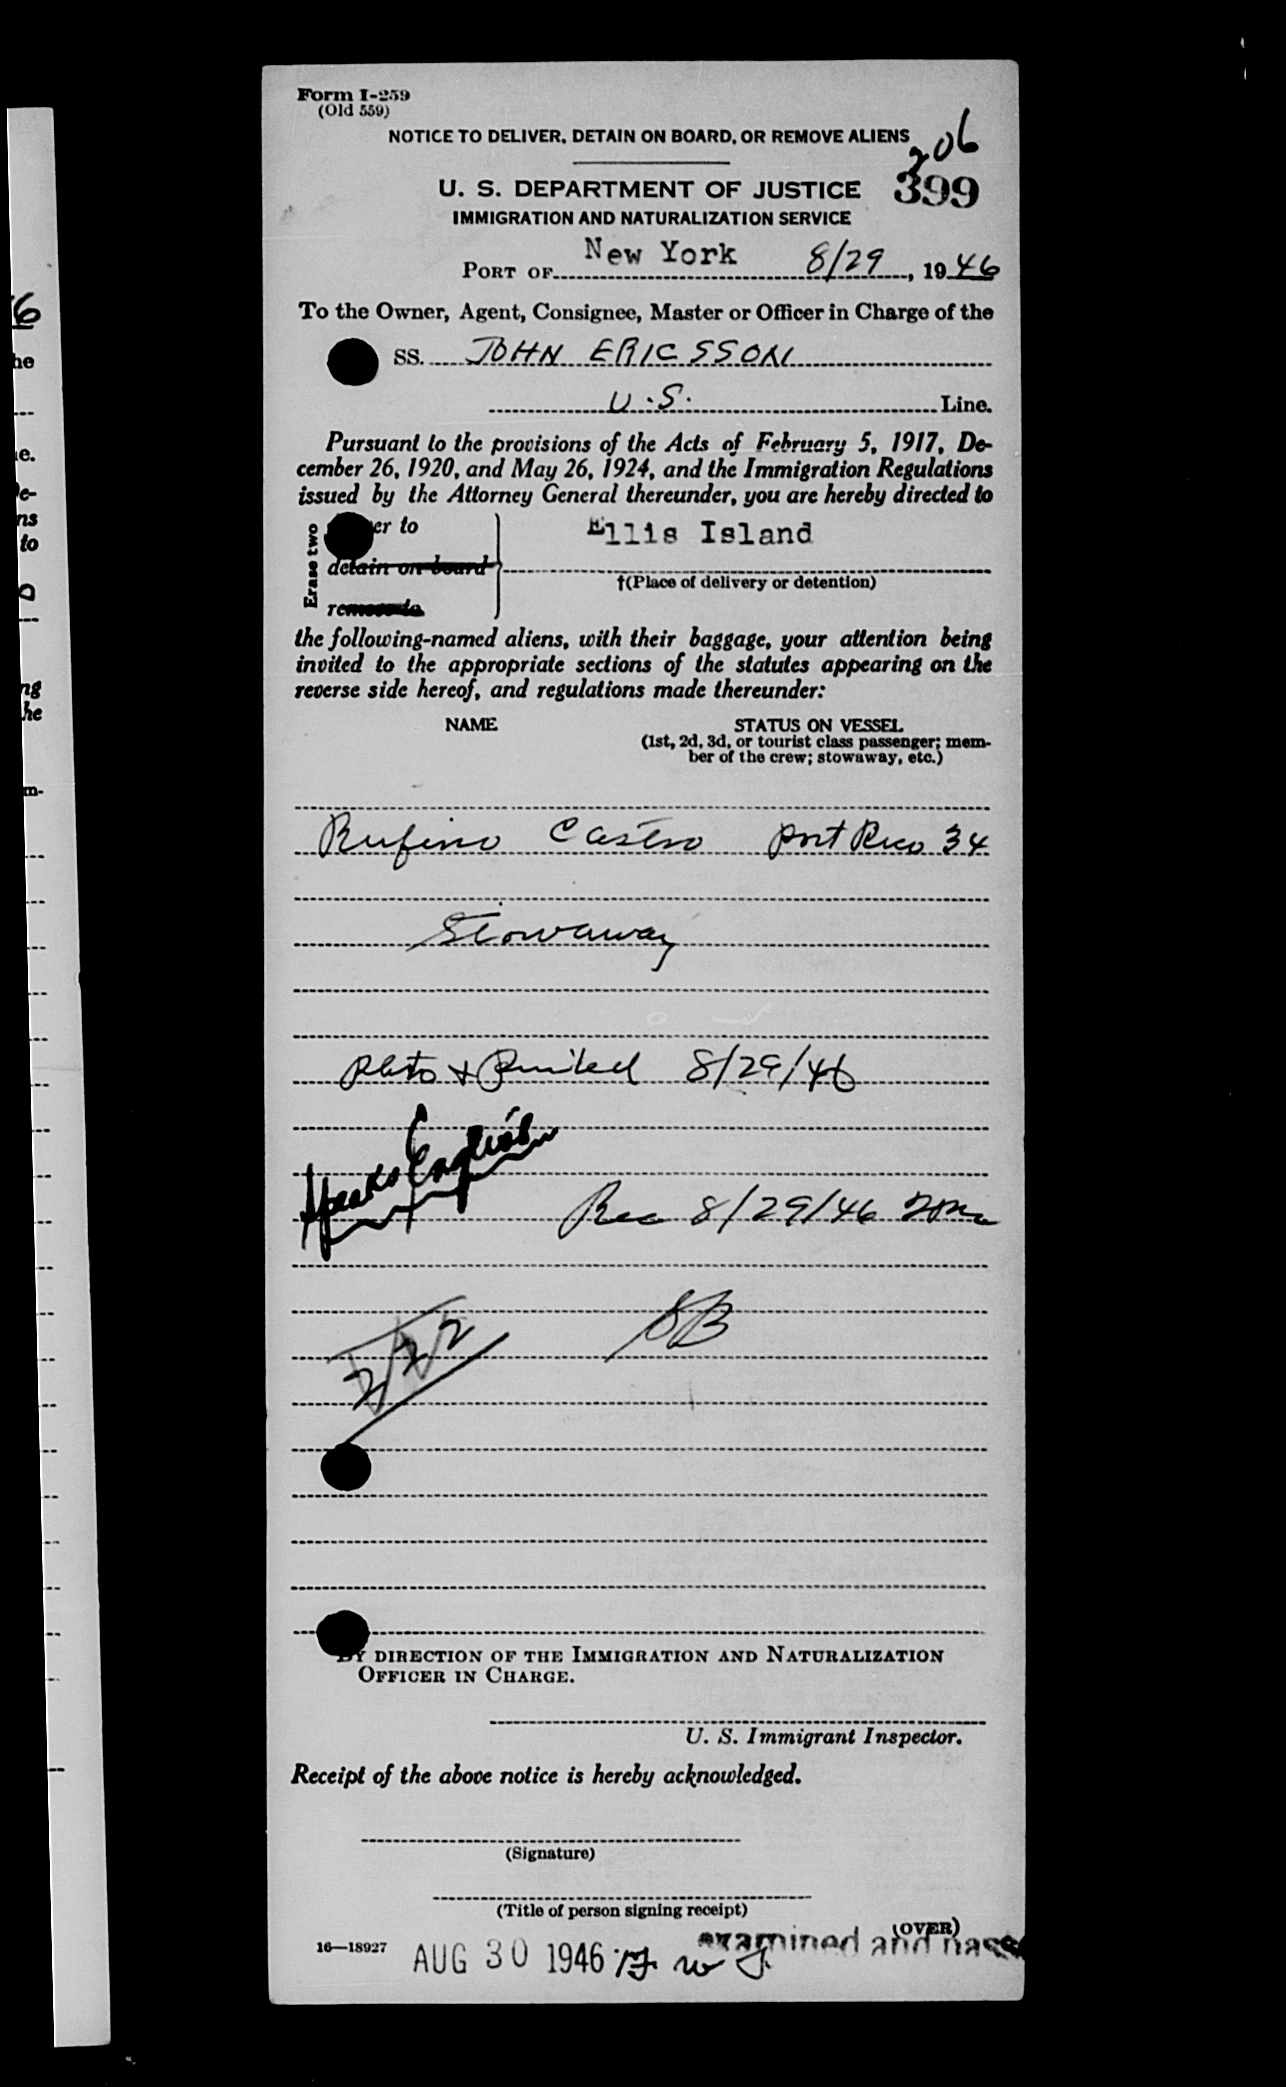 Form I-259
(Old 559)
NOTICE TO DELIVER, DETAIN ON BOARD, OR REMOVE ALIENS
206
U. S. DEPARTMENT OF JUSTICE 399
IMMIGRATION AND NATURALIZATION SERVICE
PORT OF New York 8/29, 1946
To the Owner, Agent, Consignee, Master or Officer in Charge of the
SS. JOHN ERICSSON
U.S. Line.
Pursuant to the provisions of the Acts of February 5, 1917, De-
cember 26, 1920, and May 26, 1924, and the Immigration Regulations
issued by the Attorney General thereunder, you are hereby directed to
Erase two
er to
Ellis Island
detain on board
†(Place of delivery or detention)
remove to
the following-named aliens, with their baggage, your attention being
invited to the appropriate sections of the statutes appearing on the
reverse side hereof, and regulations made thereunder:
NAME STATUS ON VESSEL
(1st, 2d, 3d, or tourist class passenger; mem-
ber of the crew; stowaway, etc.)
Rufino Castro Port Rico 34
Stowaway
Photo & Printed 8/29/46
Speaks English
Rec 8/29/46
222
SB
BY DIRECTION OF THE IMMIGRATION AND NATURALIZATION
OFFICER IN CHARGE.
U. S. Immigrant Inspector.
Receipt of the above notice is hereby acknowledged.
(Signature)
(Title of person signing receipt)
(OVER)
16—18927 AUG 30 1946 examined and pass